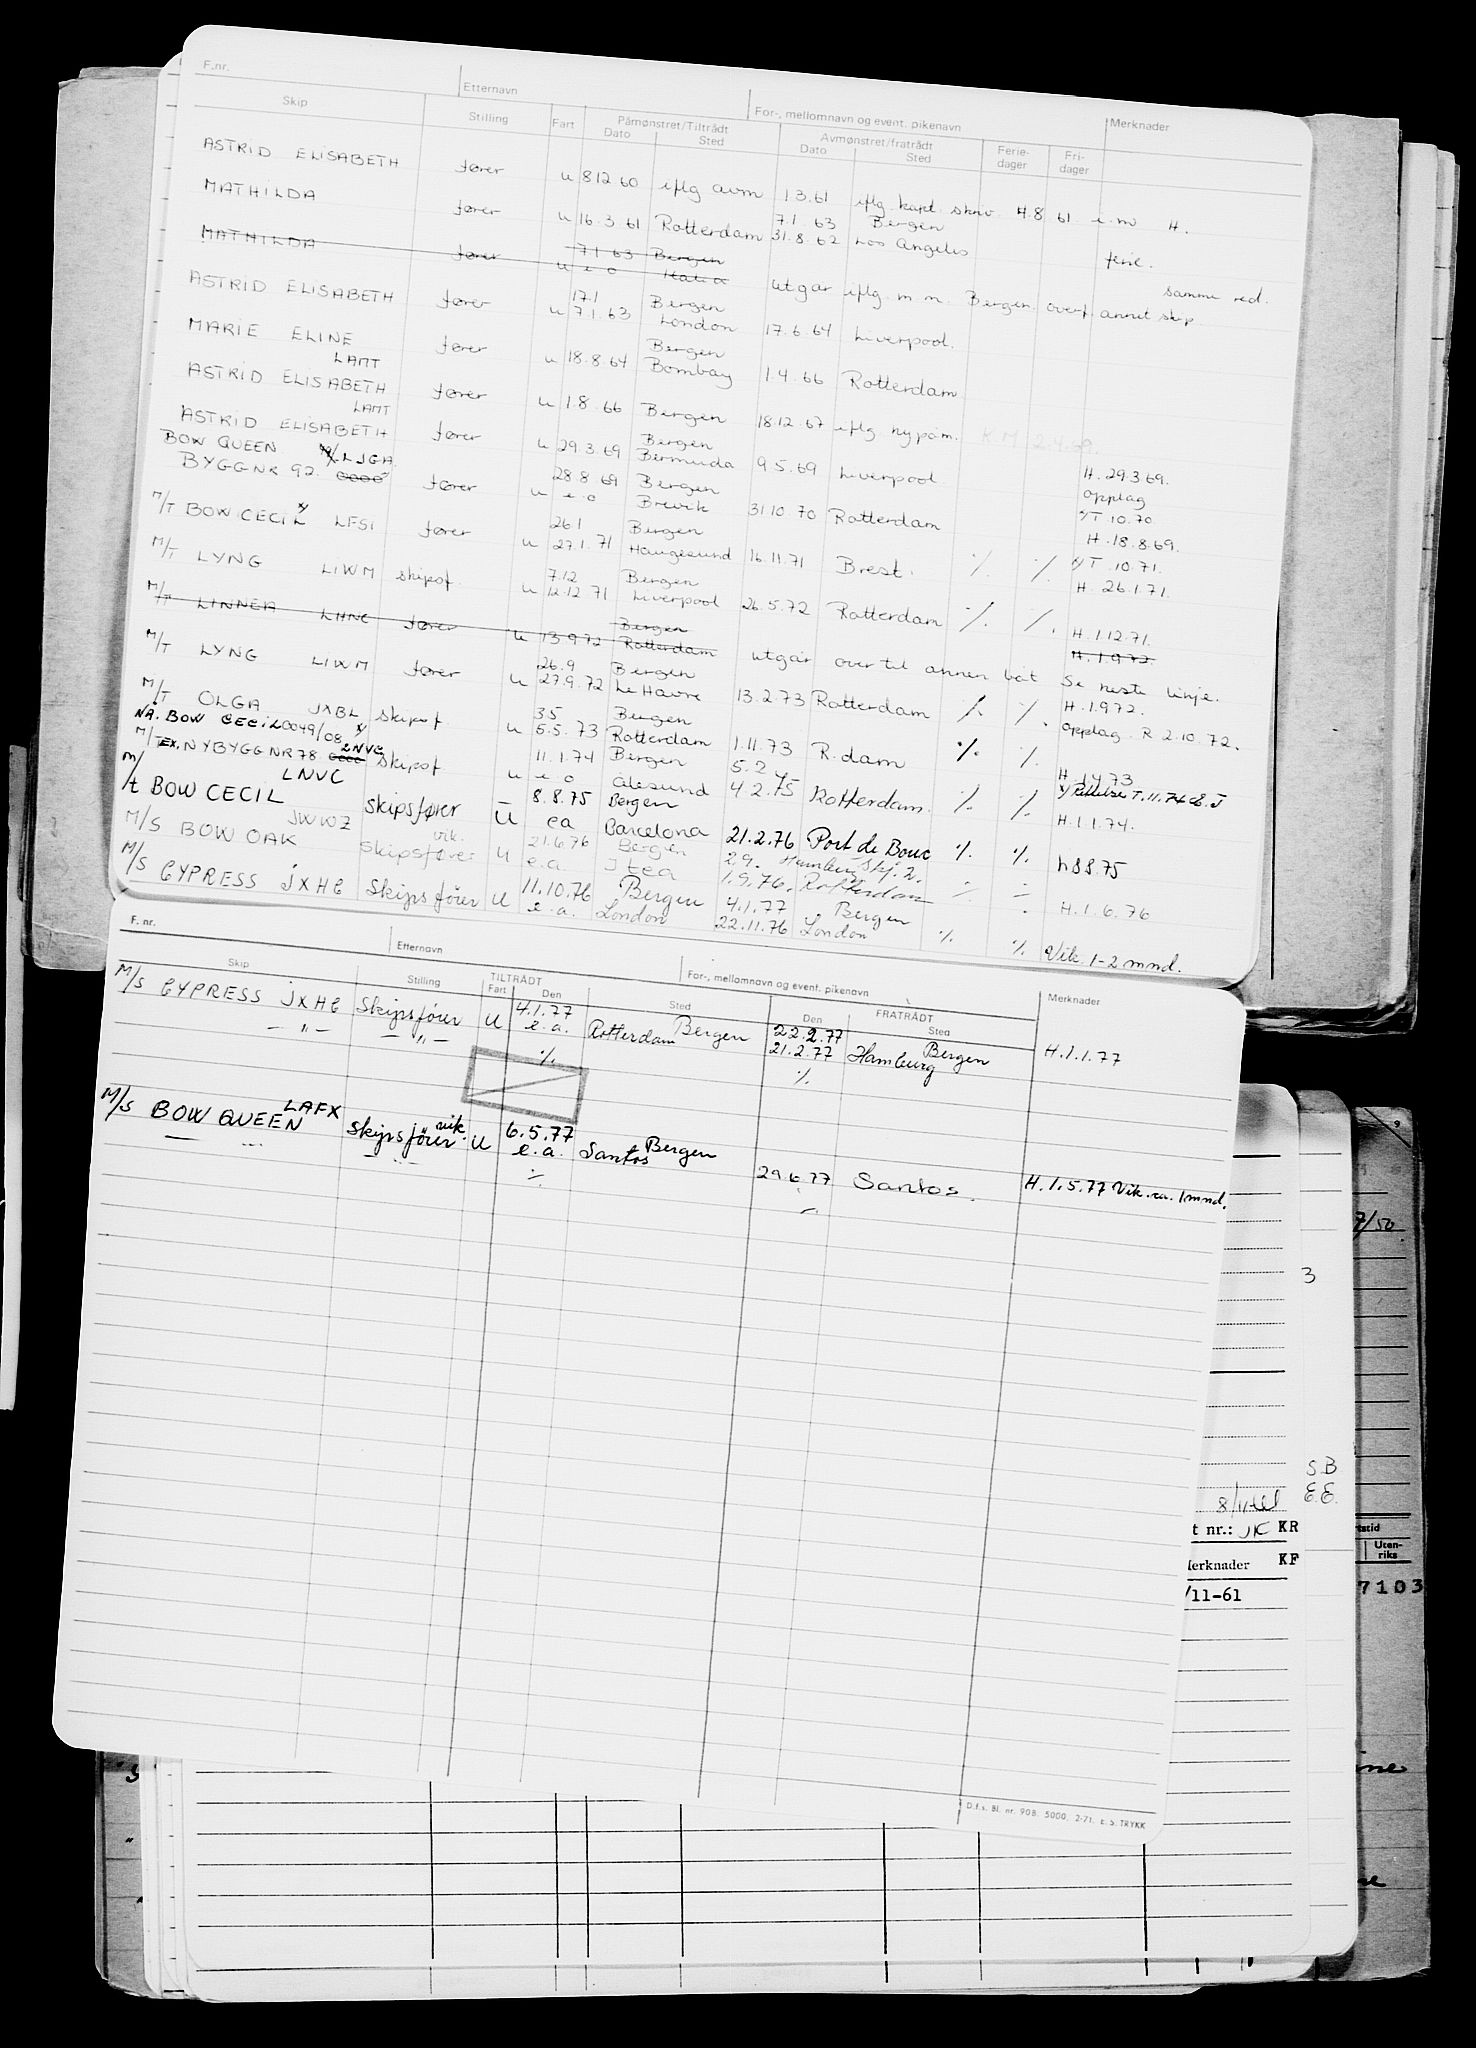 F.nr. Etternavn For-, mellomnavn og event. pikenavn Merknader
Skip Stilling Fart Påmønstret/Tiltrådt Avmønstret/fratrådt Ferie- Fri-
Dato Sted Dato Sted dager dager
ASTRID ELISABETH fører u 8.12.60 iflg avm 1.3.61 iflg. kapt. skriv. 4.8.61 i.m. H.
7.1.63 Bergen
MATHILDA fører u 16.3.61 Rotterdam 31.8.62 Los Angeles ferie.
MATHILDA fører 7.1.63 Bergen samme red.
u e o Italia utgår iflg. m.m. Bergen overf. annet skip
ASTRID ELISABETH fører 17.1 Bergen
u 7.1.63 London 17.6.64 Liverpool.
MARIE ELINE fører Bergen
LAMT u 18.8.64 Bombay 1.4.66 Rotterdam
ASTRID ELISABETH fører u 1.8.66 Bergen 18.12.67 iflg nypåm. K.M. 2.4.69.
LAMT
ASTRID ELISABETH fører Bergen
u 29.3.69 Bermuda 9.5.69 Liverpool H. 29.3.69.
BOW QUEEN LJGA opplag
BYGGNR 92. 0000 fører 28.8.69 Bergen
u e o Brevik 31.10.70 Rotterdam T. 10.70.
H. 18.8.69.
M/T BOW CECIL LFSI fører 26.1 Bergen
u 27.1.71 Haugesund 16.11.71 Brest. ⁒ ⁒ T. 10.71.
H. 26.1.71.
M/T LYNG LIWM skipsf. 7.12 Bergen
u 12.12.71 Liverpool 26.5.72 Rotterdam ⁒ ⁒ H. 1.12.71.
M/T LINNEA LHNC fører Bergen H. 1.9.72.
u 13.9.72 Rotterdam utgår over til annen båt Se neste linje.
M/T LYNG LIWM fører 26.9 Bergen H. 1.9.72.
u 27.9.72 Le Havre 13.2.73 Rotterdam ⁒ ⁒ opplag R. 2.10.72.
M/T OLGA JXBL skipsf. 3.5 Bergen
u 5.5.73 Rotterdam 1.11.73 R.dam ⁒ ⁒ H. 1.4.73
NÅ. BOW CECIL 0049/08 LNVC
M/T EX. NYBYGG NR 78. 0000 skipsf 11.1.74 Bergen 5.2
LNVC u e o Ålesund 4.2.75 Rotterdam. ⁒ ⁒ H. 1.1.74.
M/t BOW CECIL skipsfører U 8.8.75 Bergen
ea Barcelona 21.2.76 Port de Bouc ⁒ ⁒ h 8.8.75
M/S BOW OAK JWWZ skipsfører vik. U 21.6.76 Bergen 2.9. Hamburg
e.a. Itea 1.9.76. Rotterdam H. 1.6.76
M/S CYPRESS JXHE Skipsfører U 11.10.76 Bergen 4.1.77 Bergen
e.a. London 22.11.76 London ⁒ ⁒ Vik. 1-2 mnd.
F. nr. Etternavn For-, mellomnavn og event. pikenavn Merknader
Skip Stilling TILTRÅDT FRATRÅDT
Fart Den Sted Den Sted
M/S CYPRESS JXHE Skipsfører U 4.1.77 Bergen 22.2.77 Bergen H. 1.1.77
— " — — " — e.a. Rotterdam 21.2.77 Hamburg
⁒ ⁒
M/S BOW QUEEN LAFX skipsfører vik. U 6.5.77 Bergen
— " — — " — e.a. Santos 29.6.77 Santos. H. 1.5.77 Vik. ca. 1 mnd.
⁒
D.f.s. Bl. nr. 908. 5000. 2-71. E. S. TRYKK
7/50
3
S.B
E.E.
t nr.: JK KR
Merknader KF
/11-61
Uten-
riks
7103